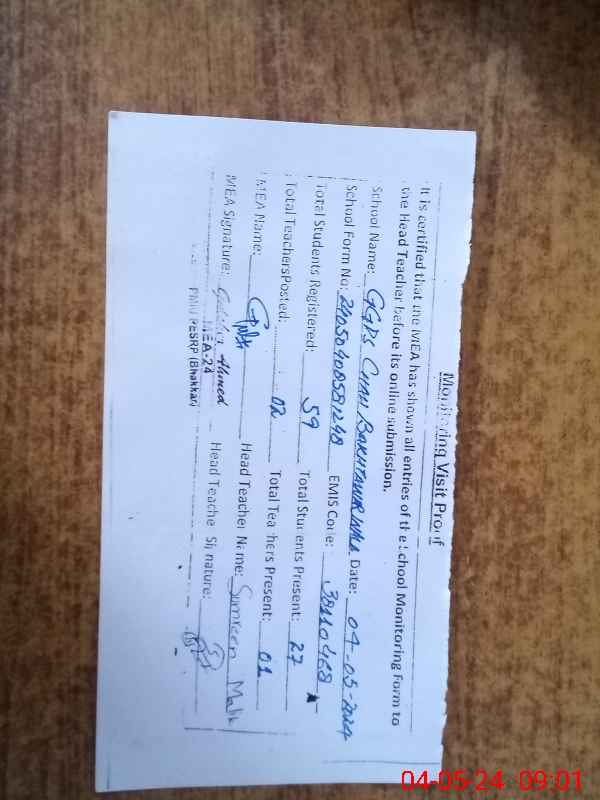 Monitoring Visit Proof
It is certified that the MEA has shown all entries of the School Monitoring Form to
the Head Teacher before its online submission.
School Name: GGPS CHAH BAKHTAWAR WALA Date: 04-05-2024
School Form No: 24050408581248 EMIS Code: 38110468
Total Students Registered: 59 Total Students Present: 27
Total TeachersPosted: 02 Total Teachers Present: 01
MEA Name: Head Teacher Name: Sumreen Malik
MEA Signature: Ahmed Head Teacher Signature:
MEA-24
PMIU PESRP (Bhakkar)
04-05-24 09:01